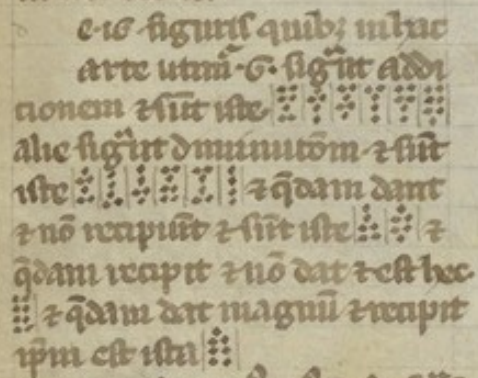 e·16· figuris quibꝫ in hac
arte utimͬ·6· sigͣnt addi
tionem ⁊ sūt iste
alie sigͣnt diminutōm ⁊ sūt
iste ⁊ q̄dam dant
⁊ nō recipiūt ⁊ sūt iste ⁊
q̄dam recipit ⁊ nō dat ⁊ est hec·
⁊ q̄dam dat magnū ⁊ recipit
ip̄m est ista